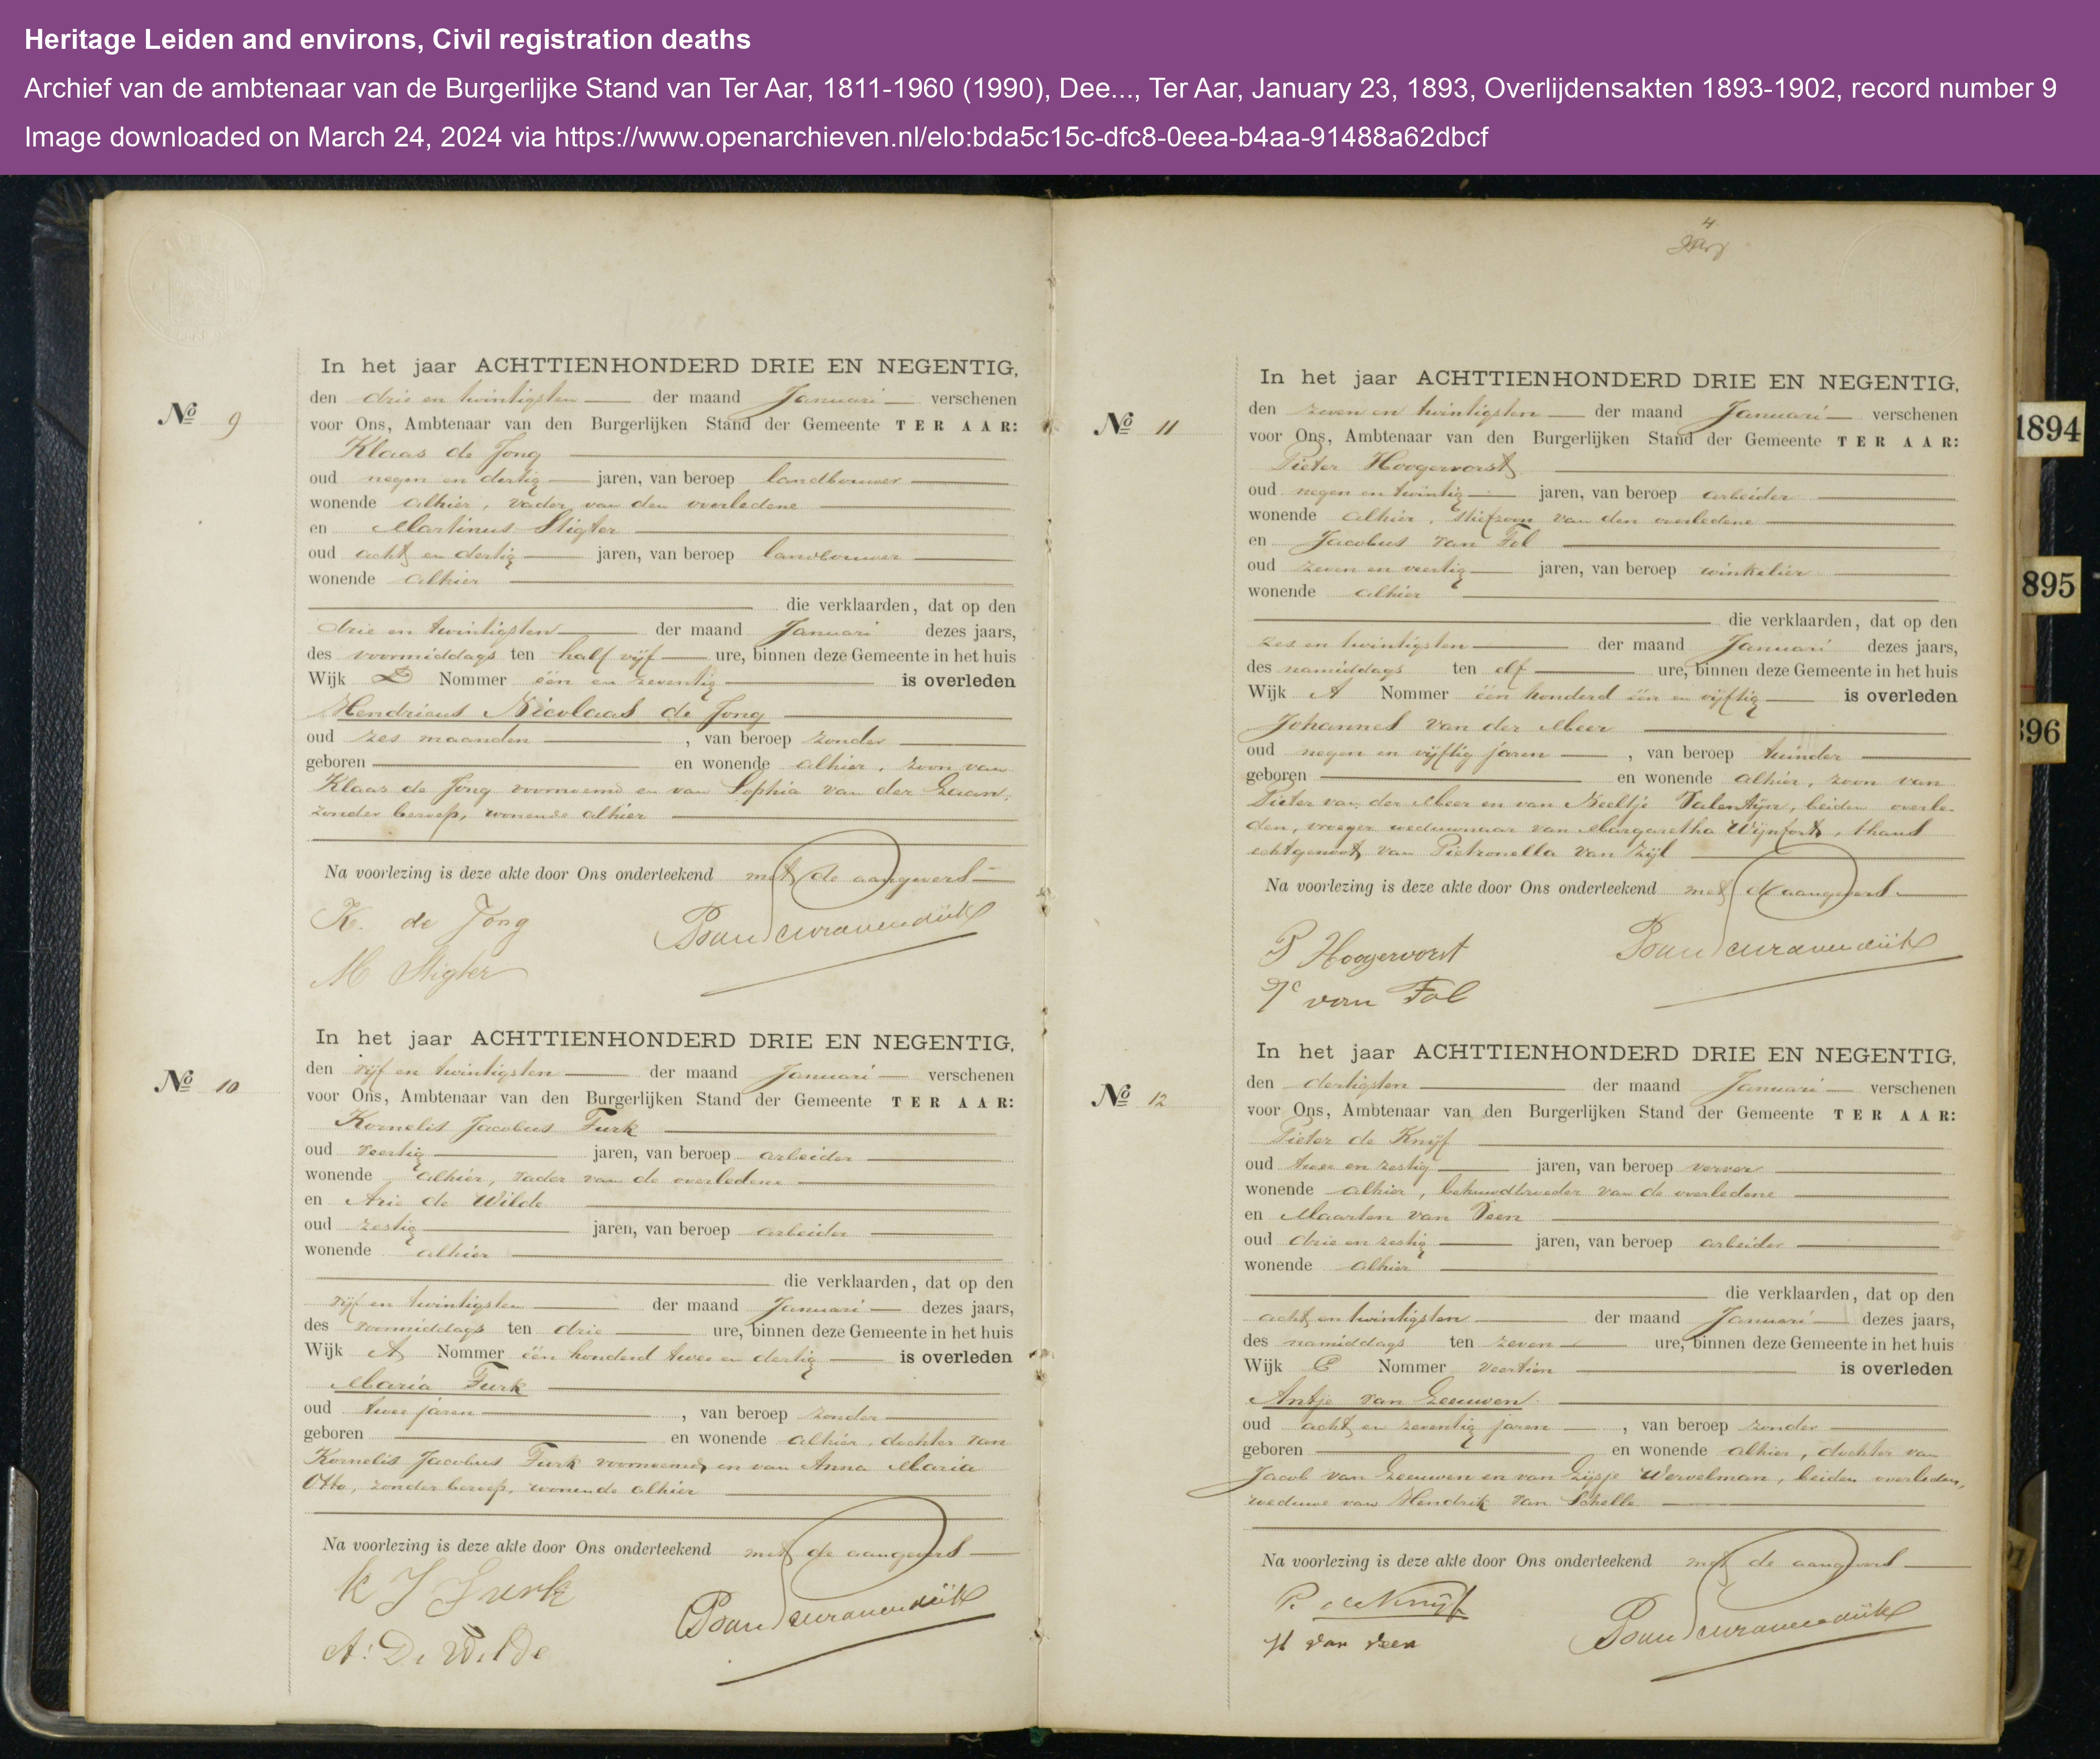 Heritage Leiden and environs, Civil registration deaths
Archief van de ambtenaar van de Burgerlijke Stand van Ter Aar, 1811-1960 (1990), Dee..., Ter Aar, January 23, 1893, Overlijdensakten 1893-1902, record number 9
Image downloaded on March 24, 2024 via https://www.openarchieven.nl/elo:bda5c15c-dfc8-0eea-b4aa-91488a62dbcf
No 9
In het jaar ACHTTIENHONDERD DRIE EN NEGENTIG,
den drie en twintigsten der maand Januari verschenen
voor Ons, Ambtenaar van den Burgerlijken Stand der Gemeente TER AAR:
Klaas de Jong
oud negen en dertig jaren, van beroep landbouwer
wonende alhier, vader van den overledene
en Martinus Stigter
oud acht en dertig jaren, van beroep landbouwer
wonende alhier
die verklaarden, dat op den
drie en twintigsten der maand Januari dezes jaars,
des voormiddags ten half vijf ure, binnen deze Gemeente in het huis
Wijk D Nommer één en zeventig is overleden
Hendricus Nicolaas de Jong
oud zes maanden, van beroep zonder
geboren en wonende alhier, zoon van
Klaas de Jong voornoemd en van Sophia van der Zaan,
zonder beroep, wonende alhier
Na voorlezing is deze akte door Ons onderteekend met de aangevers
K. de Jong
M Stigter
No 10
In het jaar ACHTTIENHONDERD DRIE EN NEGENTIG,
den vijf en twintigsten der maand Januari verschenen
voor Ons, Ambtenaar van den Burgerlijken Stand der Gemeente TER AAR:
Kornelis Jacobus Turk
oud veertig jaren, van beroep arbeider
wonende alhier, vader van de overledene
en Arie de Wilde
oud zestig jaren, van beroep arbeider
wonende alhier
die verklaarden, dat op den
vijf en twintigsten der maand Januari dezes jaars,
des voormiddags ten drie ure, binnen deze Gemeente in het huis
Wijk A Nommer één honderd twee en dertig is overleden
Maria Turk
oud twee jaren, van beroep zonder
geboren en wonende alhier, dochter van
Kornelis Jacobus Turk voornoemd en van Anna Maria
Otto, zonder beroep, wonende alhier
Na voorlezing is deze akte door Ons onderteekend met de aangevers
K J Turk
A: De Wilde
4
No 11
In het jaar ACHTTIENHONDERD DRIE EN NEGENTIG,
den zeven en twintigsten der maand Januari verschenen
voor Ons, Ambtenaar van den Burgerlijken Stand der Gemeente TER AAR:
Pieter Hoogervorst
oud negen en twintig jaren, van beroep arbeider
wonende alhier, stiefzoon van den overledene
en Jacobus van Tol
oud zeven en veertig jaren, van beroep winkelier
wonende alhier
die verklaarden, dat op den
zes en twintigsten der maand Januari dezes jaars,
des namiddags ten elf ure, binnen deze Gemeente in het huis
Wijk A Nommer één honderd één en vijftig is overleden
Johannes van der Meer
oud negen en vijftig jaren, van beroep tuinder
geboren en wonende alhier, zoon van
Pieter van der Meer en van Neeltje Valentijn, beiden overle-
den, vroeger weduwnaar van Margaretha Wijnfort, thans
echtgenoot van Pietronella van Zijl
Na voorlezing is deze akte door Ons onderteekend met de aangevers
P Hoogervorst
Jc van Tol
No 12
In het jaar ACHTTIENHONDERD DRIE EN NEGENTIG,
den dertigsten der maand Januari verschenen
voor Ons, Ambtenaar van den Burgerlijken Stand der Gemeente TER AAR:
Pieter de Knijf
oud twee en zestig jaren, van beroep verver
wonende alhier, behuwdbroeder van de overledene
en Maarten van Veen
oud drie en zestig jaren, van beroep arbeider
wonende alhier
die verklaarden, dat op den
acht en twintigsten der maand Januari dezes jaars,
des namiddags ten zeven ure, binnen deze Gemeente in het huis
Wijk C Nommer veertien is overleden
Antje van Leeuwen
oud acht en zeventig jaren, van beroep zonder
geboren en wonende alhier, dochter van
Jacob van Leeuwen en van Wervelman, beiden overleden,
weduwe van Hendrik van Schelle
Na voorlezing is deze akte door Ons onderteekend met de aangevers
P. de Knijf
M van Veen
1894
895
896